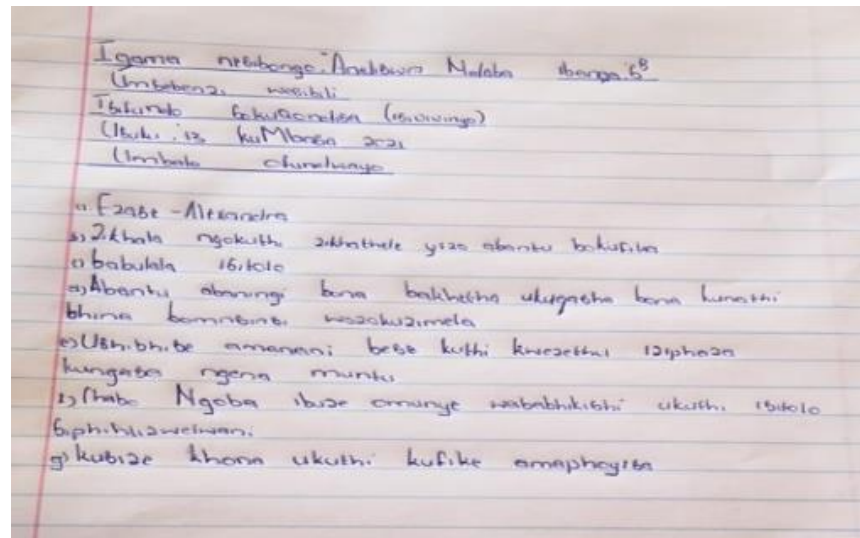 Igama nesibongo: Ndaba ibanga 5B
Umsebenzi wesibili
Isifundo sokuqondisa (isivivinyo)
Usuku: 13 kuMbasa 2021
Umbalo ofundwayo
a) Ezase - Alexandra
b) Zikhala ngokuthi zikhathele yizo abantu bokufika
c) babulala isitolo
d) Abantu abaningi bona bakhetha ukugasha bona kunothi
bhina
e) Ushibhibe amanani bese kuthi iziphaza
kungasa ngena muntu
f) Chabo Ngoba ibuze omunye wababhikishi ukuthi isitolo
g) kubize khona ukuthi kufike amaphoyisa